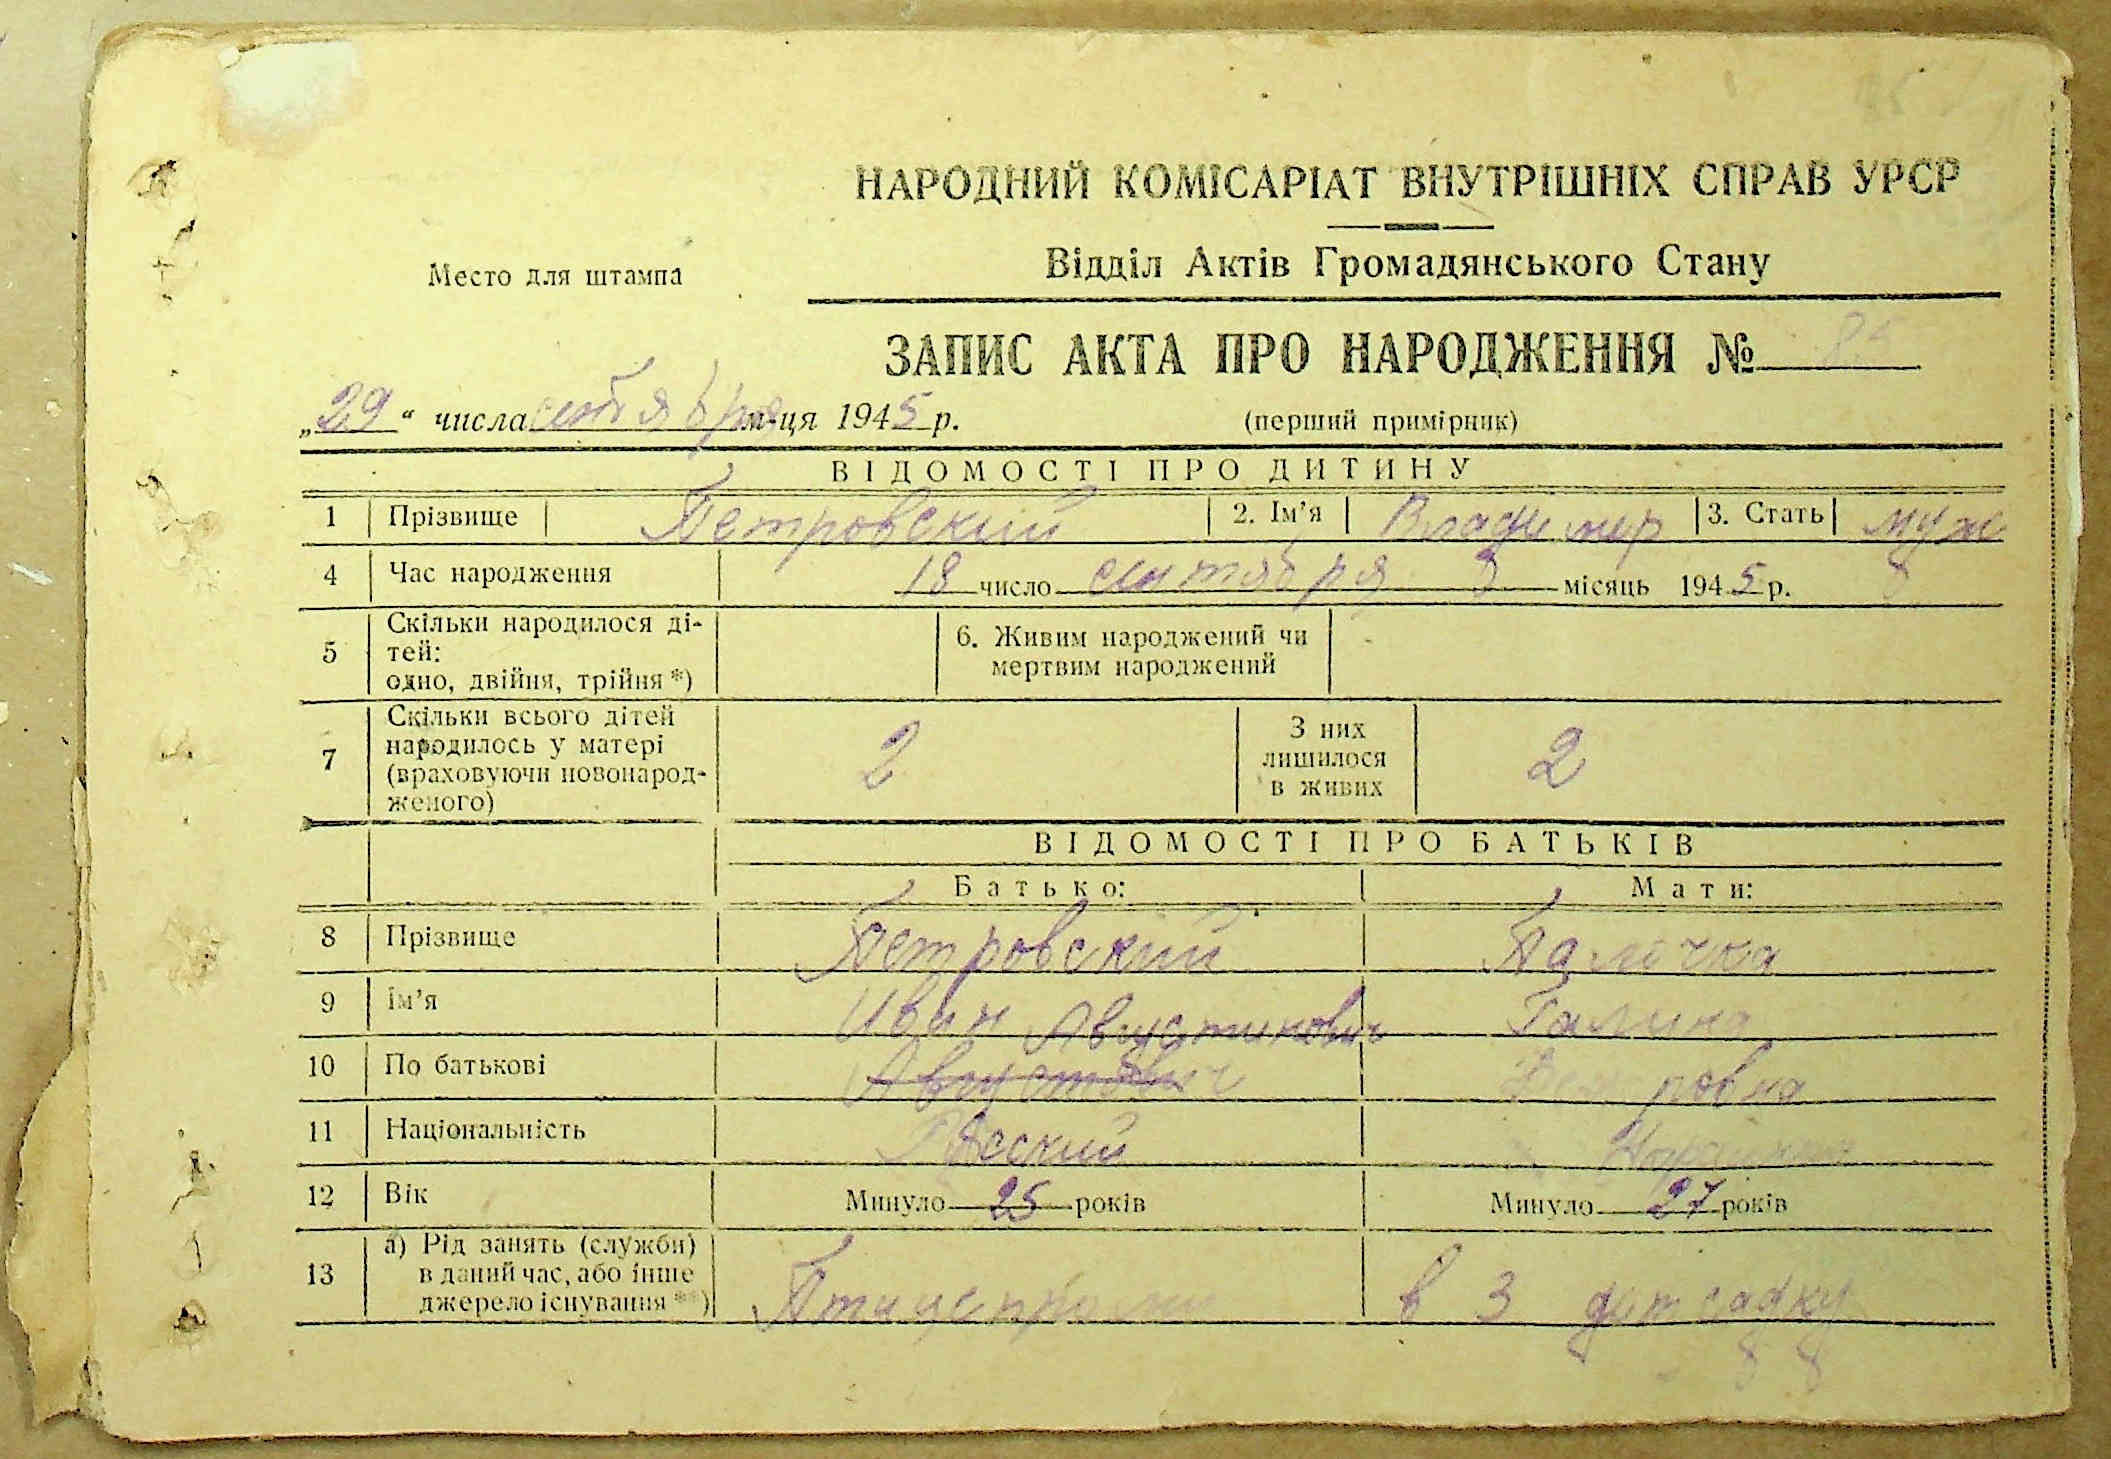 НАРОДНИЙ КОМІСАРІАТ ВНУТРІШНІХ СПРАВ УРСР
Відділ Актів Громадянського Стану
Место для штампа
ЗАПИС АКТА ПРО НАРОДЖЕННЯ № 85
„29“ числа сентября м-ця 1945 р.
(перший примірник)
ВІДОМОСТІ ПРО ДИТИНУ
1 Прізвище Петровский 2. Ім’я Владимир 3. Стать муж
4 Час народження 18 число сентября 9 місяць 1945 р.
5 Скільки народилося ді-
тей:
одно, двійня, трійня *)
6. Живим народжений чи
мертвим народжений
7 Скільки всього дітей
народилось у матері
(враховуючи новонарод-
женого)
2
З них
лишилося
в живих
2
ВІДОМОСТІ ПРО БАТЬКІВ
Батько: Мати:
8 Прізвище Петровский
9 Ім’я Иван Августинович Галина
10 По батькові Августович
11 Національність Русский
12 Вік Минуло 25 років Минуло 27 років
13 а) Рід занять (служби)
в даний час, або інше
джерело існування **)
в 3 детсадку